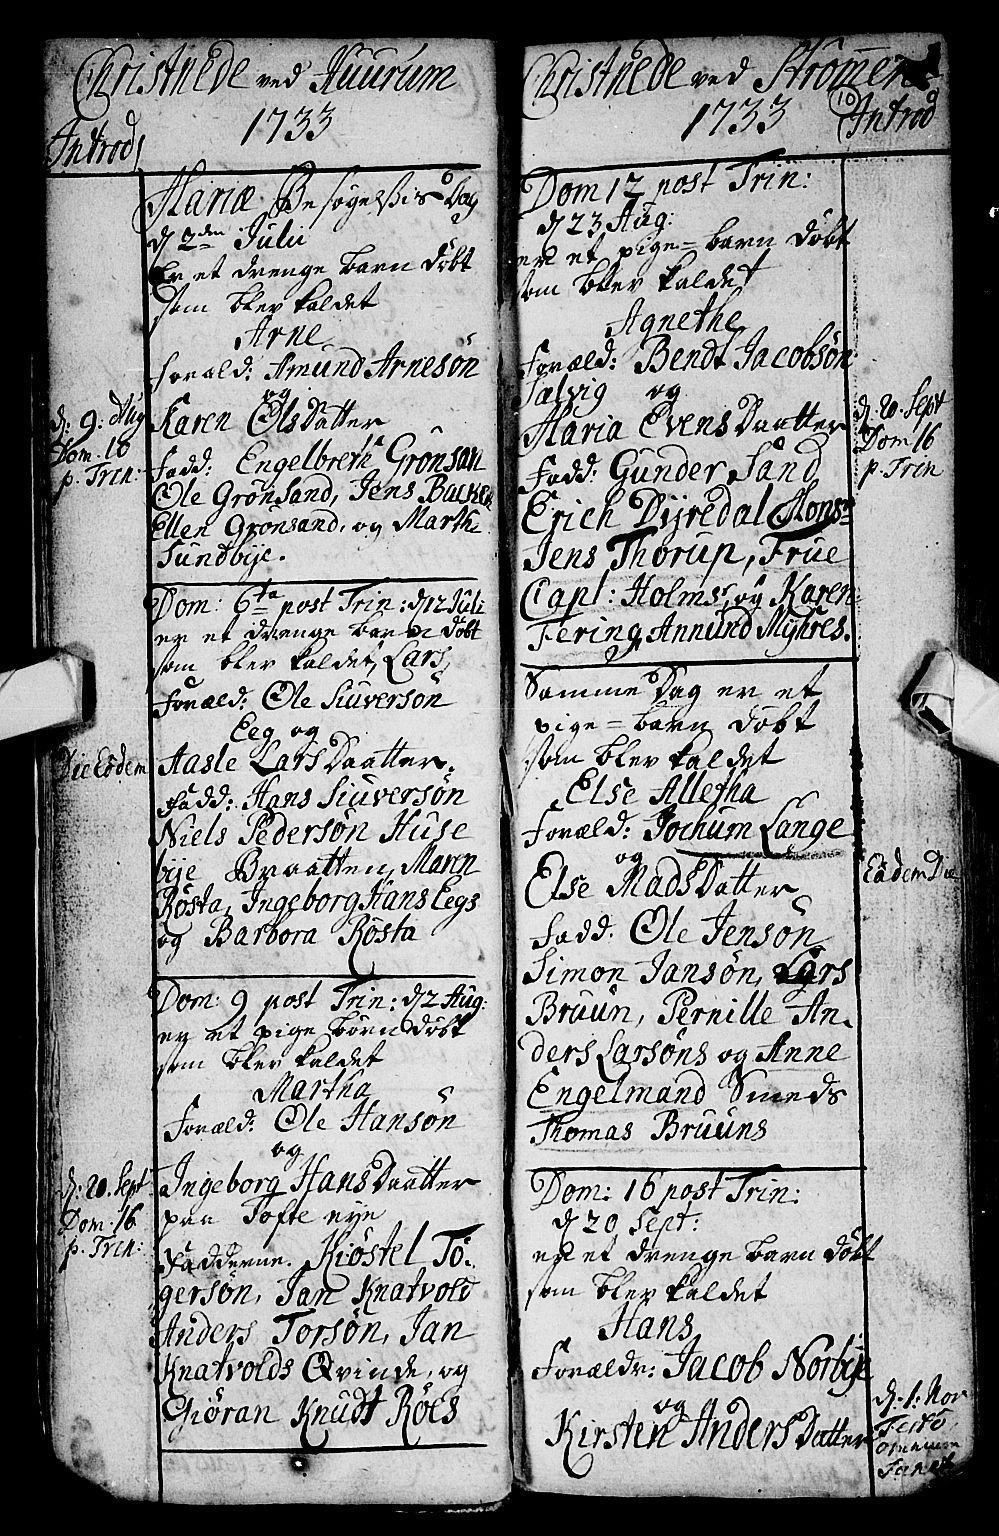 Christnede ved Huurum
1733
Introd
Mariæ Besøgelsis Dag
d 2den Julii
Er et drenge barn døbt
som blev kaldet
Arne
foræld: Amund Arnesøn
og
Karen OlsDatter
d: 9: Aug
Dom: 10
p. Trin:
fadd: Engelbreth Grønsan
Ole Grønsand, Jens Backen
Ellen Grønsand, og Marthe
Sundbye.
Dom: 6ta post Trin: d 12 Juli
er et drenge barn døbt
som blev kaldet, Lars,
Foræld: Ole Siuversøn
Eeg og
Die Eodem
Aasle LarsDaatter.
Fadd: Hans Siuversøn
Niels Pedersøn Huse
bye Braatten, Maren
Røsta, Ingeborg Hans Eegs
og Barbora Røsta
Dom: 9 post Trin: d 2 Aug:
er et pige børn døbt
som blev kaldet
Martha
Foræld: Ole Hansøn
og
d: 20. Sept
Dom: 16
p. Trin:
Ingeborg HansDaatter
paa Tofte eye
Fadderne. Kiøstel To:
gersøn, Jan Knatvold
Anders Torsøn, Jan
Knatvolds Qvinde, og
Giøran Knudt Røes
Christnede ved Strømen
1733
10
Introd
Dom 12 post Trin:
d 23 Aug:
er et pige=barn døbt
som blev kaldet
Agnethe
Foræld: Bendt Jacobsøn
Salvig og
Maria EvensDaatter
d. 20. Sept
Dom 16
p. Trin
Fadd: Gunder Sand
Erich Dyredal Monsr
Jens Thorup, Frue
Capt: Holms, og Karen
Fering Annund Myhres.
Samme Dag er et
pige=barn døbt
som blev kaldet
Else Alletha
Foræld: Jochum Lange
og
Else MadsDatter
Eadem Die
Fadd. Ole Jensøn
Simon Jansøn, Lars
Bruun, Pernille An-
ders Larsøns og Anne
Engelmand Smeds
Thomas Bruuns
Dom: 16 post Trin:
d 20 Sept:
er et drenge barn døbt
som blev kaldet
Hans
Forældr: Jacob Norbye
og
Kirsten AndersDatter
d. 1: Nov
Festo
omnium